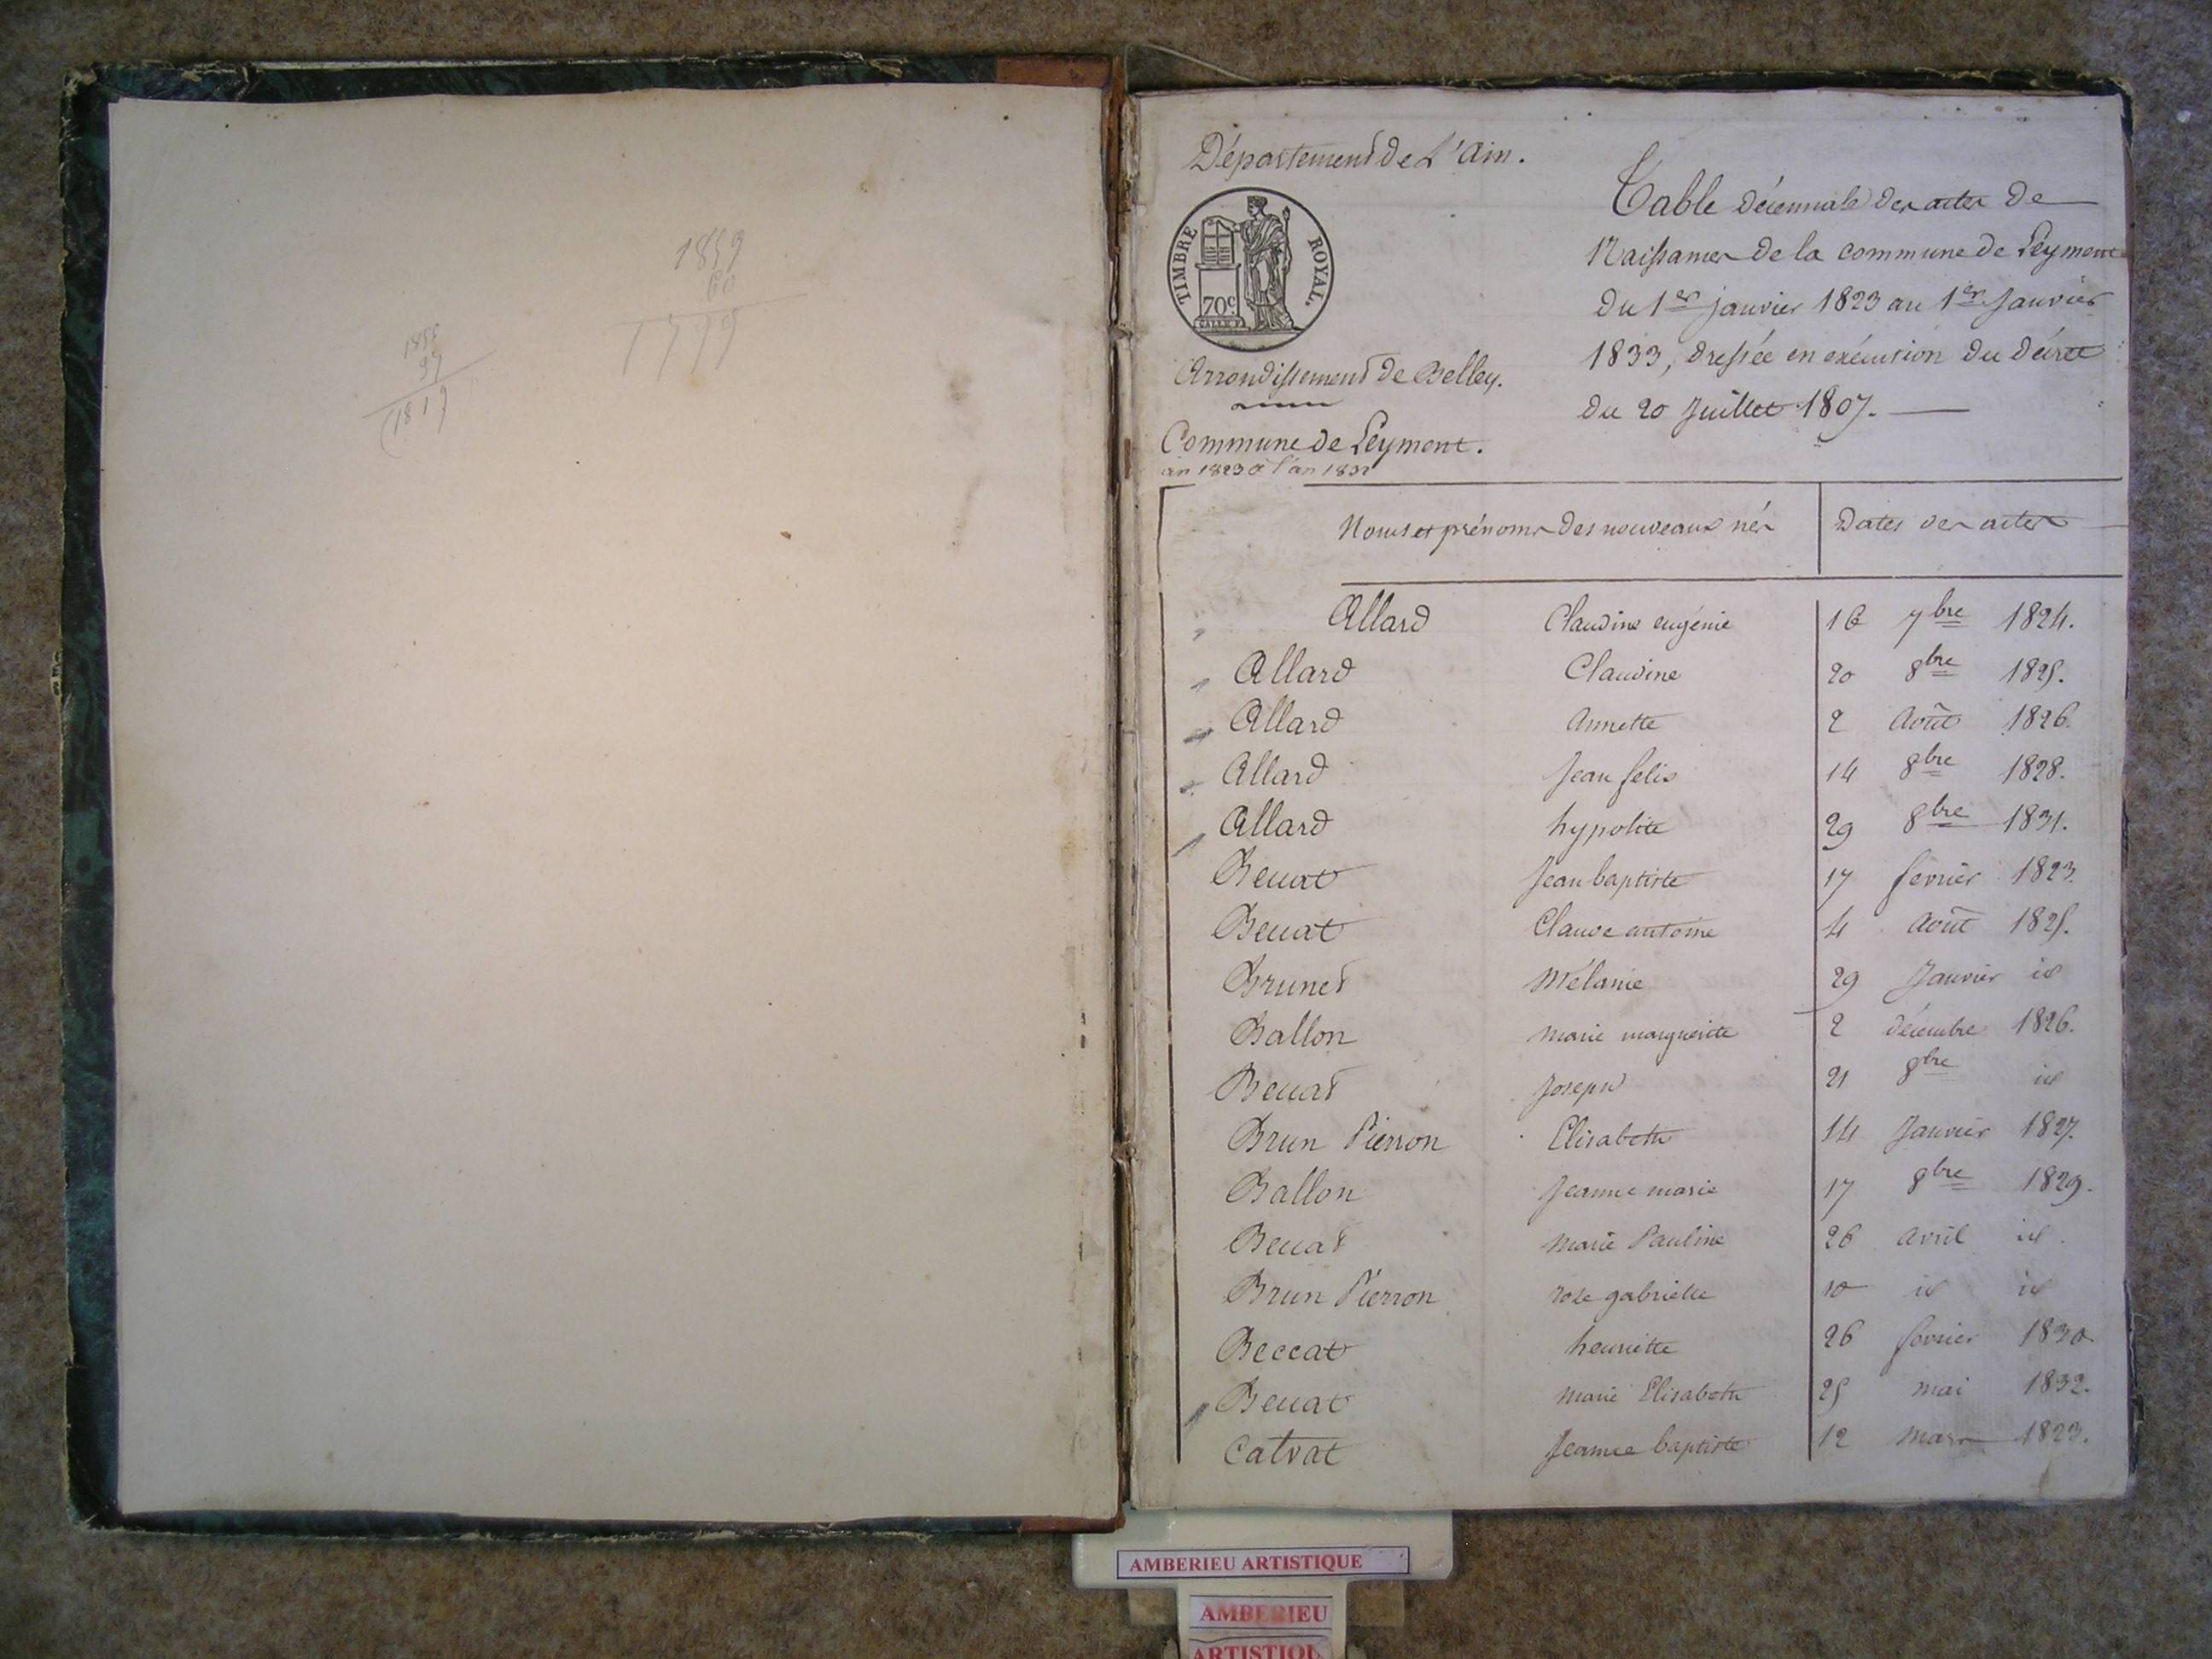 1859
60
1799
1819
Département de L'Ain.
TIMBRE ROYAL.
70c.
Arrondissement de Belley.
Commune de Leyment.
an 1823 à l'an 1832
Table décennale des actes de
Naissances de la commune de Leyment
du 1er janvier 1823 au 1er Janvier
1833, dressée en exécution du décret
du 20 Juillet 1807.
Noms et prénoms des nouveaux nés Dates des actes
Allard Claudine eugénie 16 7bre 1824.
Allard Claudine 20 8bre 1825.
Allard Annette 2 Août 1826.
Allard Jean felix 14 8bre 1828.
Allard hypolite 29 8bre 1831.
Beuat Jean baptiste 17 fevrier 1823.
Beuat Claude antoine 4 Août 1825.
Brunet Mélanie 29 Janvier id
Ballon Marie margueritte 2 décembre 1826.
Beuat Joseph 21 8bre id
Brun Pierron Elisabeth 14 Janvier 1827.
Ballon Jeanne marie 17 8bre 1829.
Beuat Marie Pauline 26 avril id.
Brun Pierron roze gabrielle 10 id id
Beccat henriette 26 fevrier 1830
Beuat Marie Elisabeth 25 mai 1832.
Calvat Jeanne baptiste 12 mars 1823.
AMBERIEU ARTISTIQUE
AMBERIEU